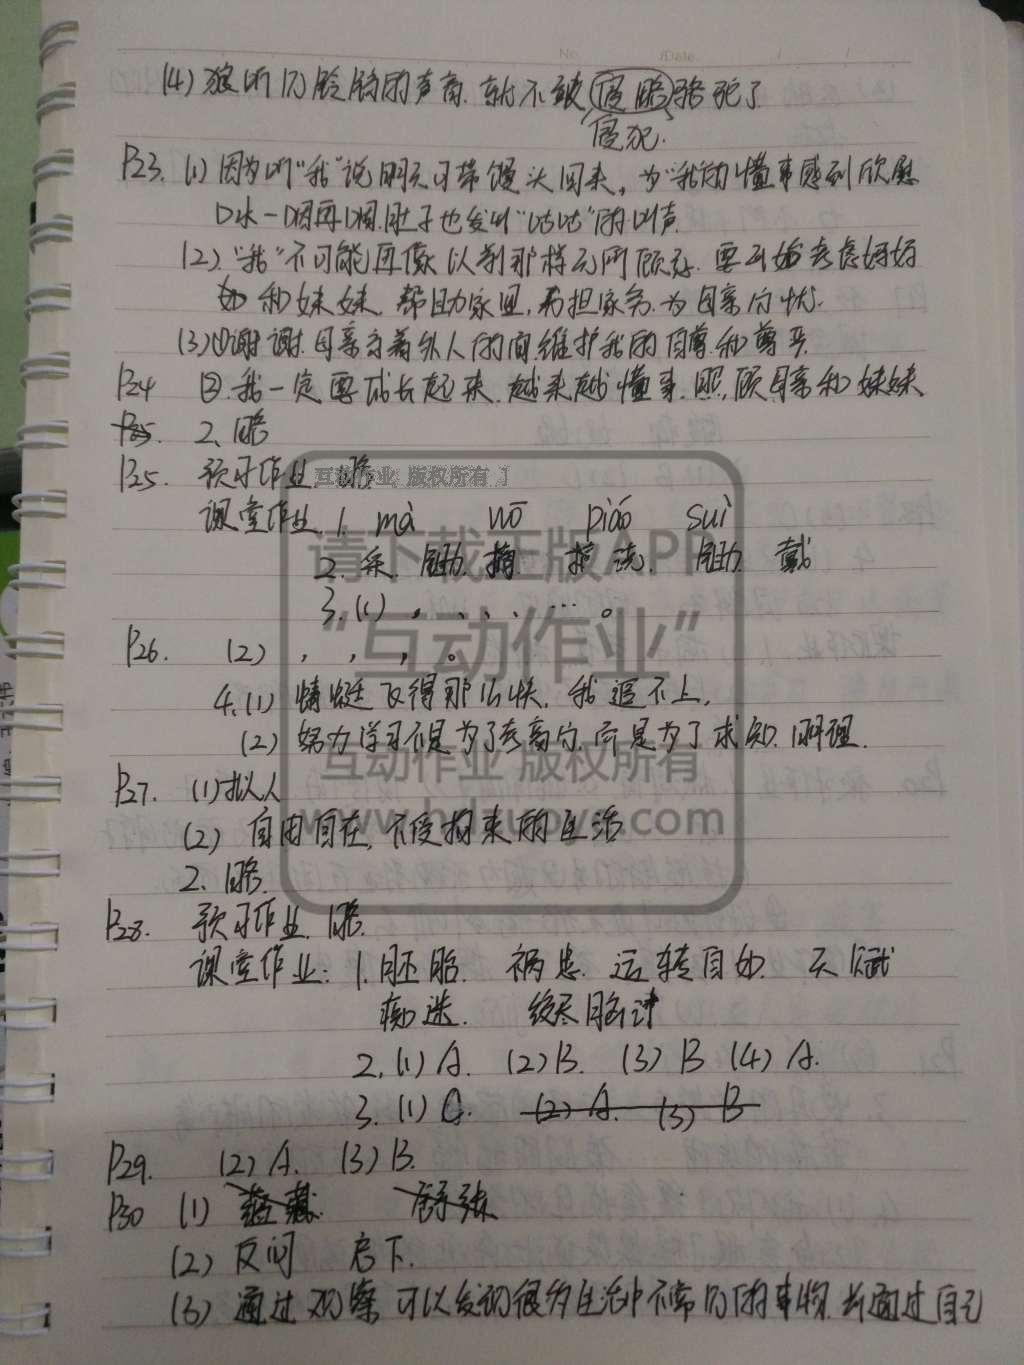 No. /Date. / /
(4) 狼听见铃铛的声音,就不敢侵略骆驼了.
侵犯.
P23. (1) 因为听"我"说明天可带馒头回来,为"我"的懂事感到欣慰
口水一咽再咽.肚子也发出"咕咕"的叫声.
(2). "我"不可能再像以前那样无所顾忌.要开始考虑妈妈
和妹妹,帮助家里,承担家务.为母亲分忧.
(3) ①谢谢.母亲当着外人的面.维护我的自尊和尊严.
P24 ②.我一定要成长起来.越来越懂事.照顾母亲和妹妹.
P25. 2. 略
P25. 预习作业 略
互动作业, 版权所有
课堂作业 1. mà nuō piáo suì
请下载正版APP
3. (1) , 、 、 … 。
"互动作业"
P26. (2) , , , 。
4. (1) 蜻蜓飞得那么快,我追不上.
(2) 努力学习不是为了考高分,而是为了求知.明理.
互动作业 版权所有
P27. (1) 拟人
www.hdzuoye.com
(2) 自由自在,不受拘束的生活
2. 略.
P28. 预习作业. 略.
课堂作业: 1. 胚胎. 祸患. 运转自如. 天赋
痴迷. 绞尽脑汁
2. (1) A. (2) B. (3) B (4) A.
3. (1) C. (2) A. (3) B
P29. (2) A. (3) B.
P30 (1) 蕴藏. 舒张
(2) 反问 启下.
(3) 通过观察可以发现很多生活中不常见的事物.并通过自己